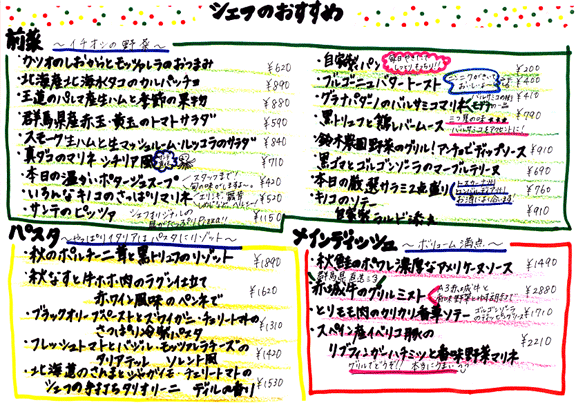 シェフのおすすめ
前菜 ～イチオシの野菜～
・カツオのしおからとモッツァレラのおつまみ ¥620
・北海道産北海水タコのカルパッチョ ¥890
・王道のパルマ産生ハムと季節の果物 ¥880
・群馬県産赤玉・黄玉のトマトサラダ ¥590
・スモーク生ハムと生マッシュルーム・ルッコラのサラダ ¥840
・真ダコのマリネ シチリア風 ¥710
・本日の温かいポタージュスープ ¥420
・いろんなキノコのさっぱりマリネ ¥520
・サンテのピッツァ シェフオリジナルの Pizza!! ¥1150
・自家製パン ¥200
・ブルゴーニュバタートースト ¥400
・グラナパダノのバルサミコマリネ ¥410
・黒トリュフと鶏レバームース ¥790
・鈴木農園野菜のグリル!アンチョビディップソース ¥910
・黒ゴマとゴルゴンゾーラのマーブルテリーヌ ¥690
・本日の厳選サラミ2点盛り ¥760
・キノコのソテー
¥910
パスタ ～やっぱりイタリアはパスタにリゾット～
・秋のポルチーニ茸と黒トリュフのリゾット ¥1890
・秋なすと牛ホホ肉のラグー仕立て
赤ワイン風味のペンネで ¥1620
・ブラックオリーブペーストとズワイガニ・チェリートマトの
さっぱり冷製パスタ ¥1310
・フレッシュトマトとバジル・モッツァレラチーズの
タリアテッレ ソレント風 ¥1420
・北海道のさんまとジャガイモ・チェリートマトの
シェフの手打ちタリオリーニ ディルの香り ¥1530
メインディッシュ ～ボリューム満点～
・秋鮭のポワレ 濃厚なアメリケーヌソース ¥1490
群馬県直送
赤城牛のグリルミスト ¥2880
・とりモモ肉のカリカリ香草ソテー ¥1710
・スペイン産イベリコ豚の
リブフィンガーハチミツと香味野菜マリネ ¥2210
グリルでどうぞ!! 本当にうまいっっ